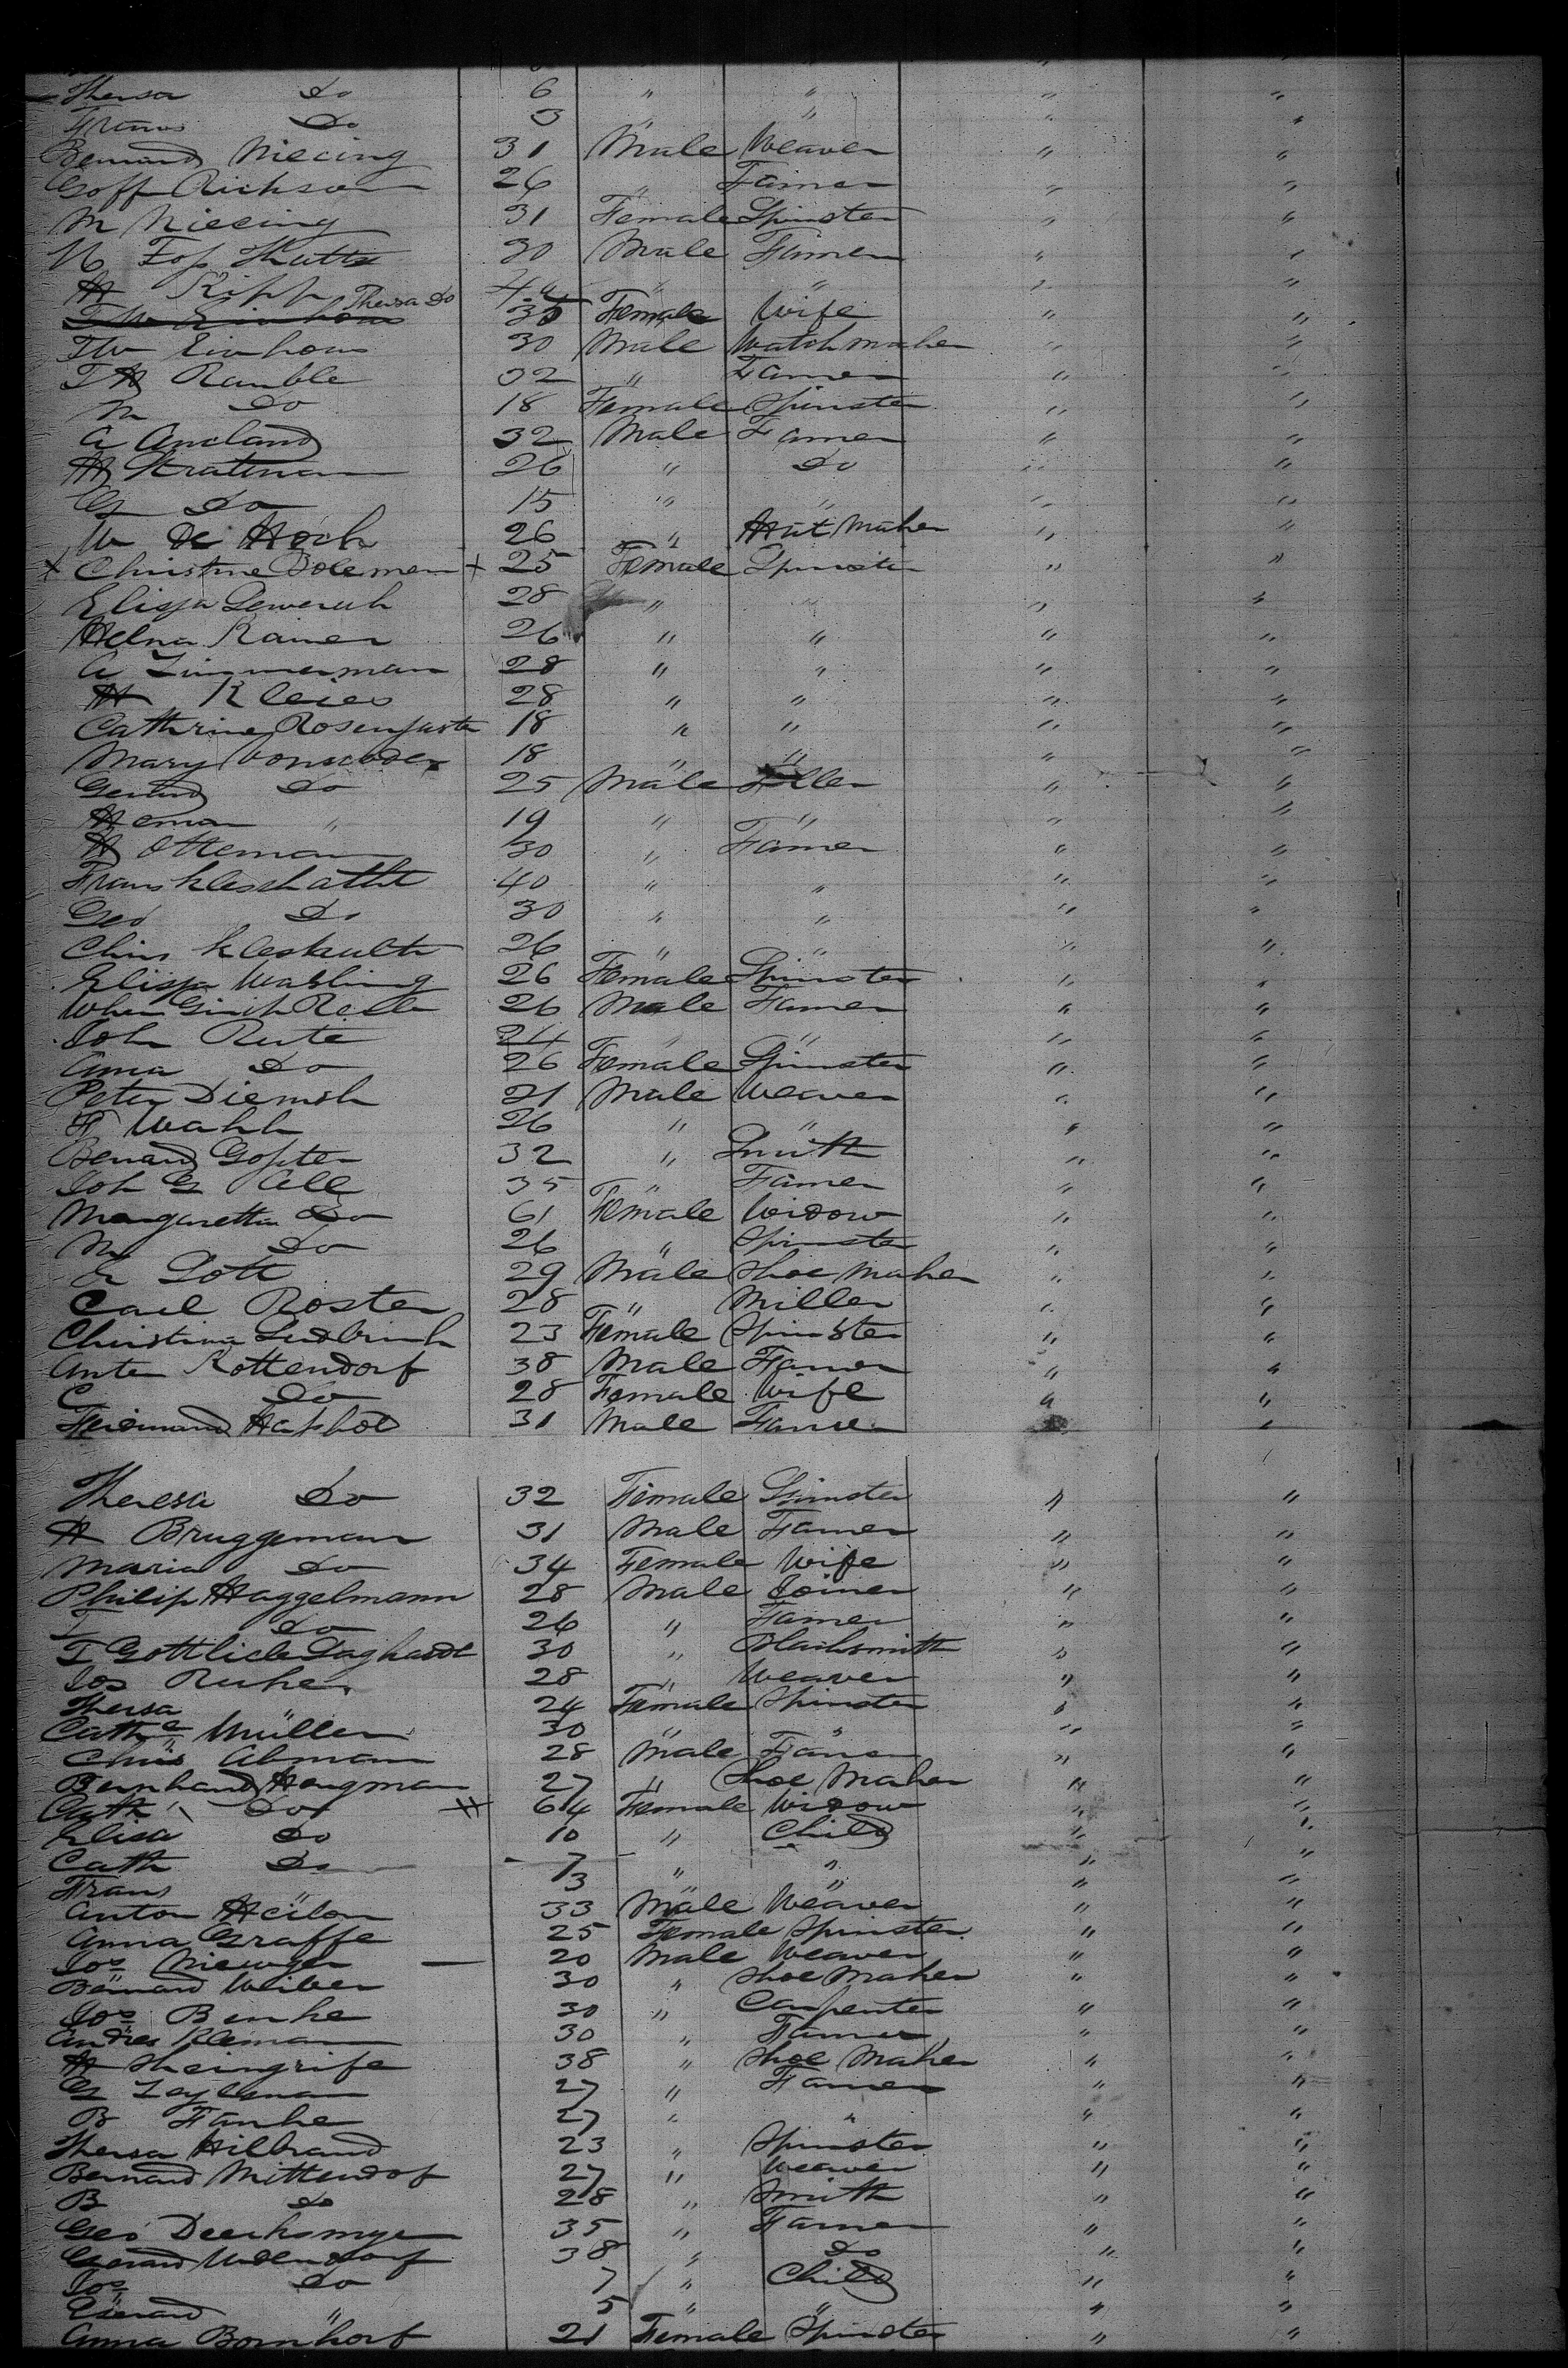 Thersa Do 6 " " " "
Frans Do 3 " " " "
Bernard Niecing 31 Male Weaver " "
Goff Richson 26 " Famer " "
M Niecing 31 Female Spinster " "
30 Male Famer " "
H Ripp " " " "
Thersa Do 35 Female Wife " "
T W Einhous 30 Male Watch maker " "
T H Ramble 32 " Famer " "
M Do 18 Female Spinster " "
A Ancland 32 Male Famer " "
H Stratman 26 " Do " "
G Do 15 " " " "
W De Hoch 26 " Hat Maker " "
x Christine Coleman + 25 Female Spinster " "
Elissa 28 " " "
Helna Rainer 26 " " " "
A Zimmerman 28 " " " "
H Kleies 28 " " " "
Cathrine 18 " " " "
Mary 18 " " " "
Gerard Do 25 Male " "
Heman " 19 " " " "
H Otteman 30 " Famer " "
Frans 40 " " " "
Geo Do 30 " " " "
Chris 26 " " " "
Elissa Wasling 26 Female Spinster " "
26 Male Famer " "
Joh Rute 24 " " " "
Anna Do 26 Female Spinster " "
Peter Diemsh 21 Male Weaver " "
F Wahh 26 " " " "
Benard Goster 32 " Smith " "
Joh G All 35 " Famer " "
Margaretha Do 61 Female Widow " "
M Do 26 " Spinster " "
E Lott 29 Male Shoe Maker " "
Carl Roster 28 " Miller " "
Christina Ludbrinh 23 Female Spinster " "
Anton Rottendorf 38 Male Famer " "
C Do 28 Female Wife " "
31 Male Famer " "
Theresa Do 32 Female Spinster " "
H Bruggeman 31 Male Famer " "
Maria Do 34 Female Wife " "
Philip Haggelmann 28 Male Joiner " "
T Do 26 " Famer " "
T Gottlieb Daghardt 30 " Blacksmith " "
Jos Ruher 28 " Weaver " "
Thersa " 24 Female Spinster " "
Cathe Müller 30 " " " "
Chris Abmann 28 Male Famer " "
Bernhard Hengman 27 " Shoe Maker " "
Cath Do 64 Female Widow " "
Elisa Do 10 " Child " "
Cath Do 7 " " " "
Frans " 3 " " " "
Anton Heilon 33 Male Weaver " "
Anna Graffe 25 Female Spinster " "
Jos Niewger 20 Male Weaver " "
Bernard Weiber 30 " Shoe Maker " "
Jos Benhe 30 " Carpenter " "
Andres Kleman 30 " Famer " "
H Sheingrife 38 " Shoe Maker " "
G 27 " Famer " "
B Fanhe 27 " " " "
Thersa Hilbrand 23 " Spinster " "
Bernard Mittendof 27 " Weaver " "
B Do 28 " Smith " "
Geo Deerhsmye 35 " Famer " "
Gerard 38 " Do " "
Jos Do 7 " Child " "
Gerard " 5 " " " "
Anna Bornhorf 21 Female Spinster " "